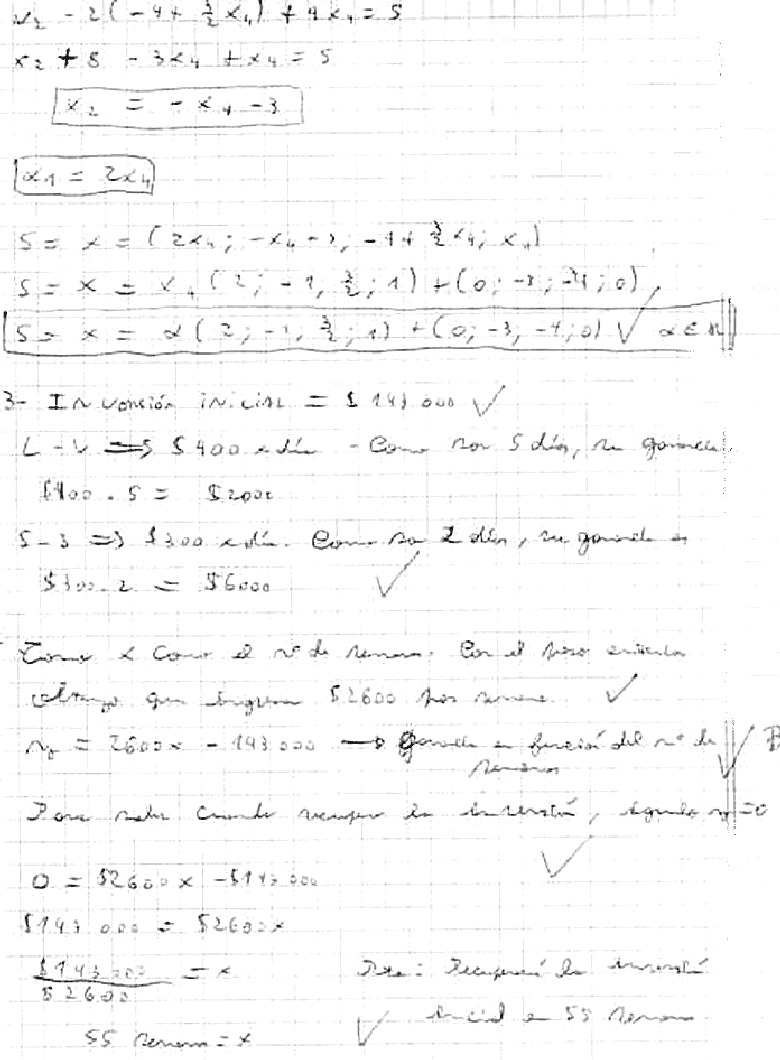 x₂ - 2(-4 + 3/2 x₄) + 4x₄ = 5
x₂ + 8 - 3x₄ + x₄ = 5
x₂ = -x₄ - 3
x₁ = 2x₄
S = x = (2x₄; -x₄ - 3; -4 + 3/2 x₄; x₄)
S = x = x₄ (2; -1, 3/2; 1) + (0; -3; -4; 0)
S = x = α (2; -1, 3/2; 1) + (0; -3, -4; 0) ✓ α ∈ R
3- Inversión inicial = $ 143.000 ✓
L - V => $ 400 x día - Como son 5 días, su ganancia
$400 . 5 = $2000
S - D => $300 x día. Como son 2 días, su ganancia es
$300 . 2 = $6000 ✓
Tomo x como el nº de semanas. Con el paso
que ingresa $2600 por semana. ✓
y = 2600x - 143.000 → ganancia en función del nº de ✓ B
semanas
Para saber cuando recupera la inversión, igualo y = 0
✓
0 = $2600x - $143.000
$143.000 = $2600x
$143.000 / $2600 = x
Rta: Recuperará la inversión
inicial en 55 semanas
55 semanas = x ✓